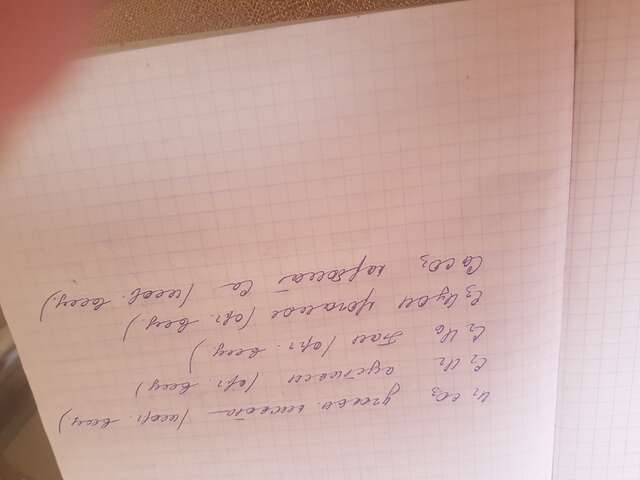 H2 CO3 угольн. кислота (неор. вещ.)
C2 H2 ацетилен (орг. вещ)
C2 H6 Этан (орг. вещ.)
C3 H7OH пропанол (орг. вещ.)
Ca CO3 карбонат Ca (неор. вещ.)